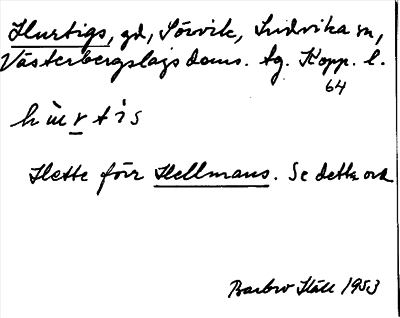 Hurtigs, gd, Sörvik, Ludvika sn,
Västerbergslags doms. tg. Kopp. l.
64
hùrtis
Hette förr Hellmans. Se detta ord
Barbro Häll 1953